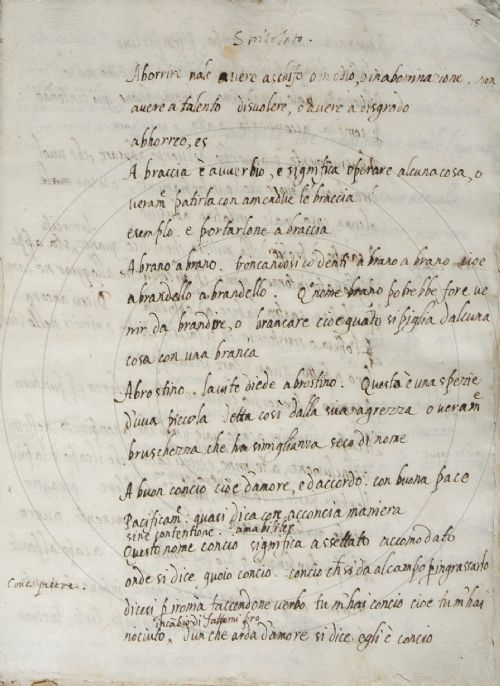 Aborrire vale avere a schifo o in odio, o in abominazione. non
avere a talento disvolere, o avere a disgrado
abhorreo, es
A braccia è avverbio, e significa operare alcuna cosa, o
veram.e patirla con amendue le braccia
esemplo. e portarlone a braccia
A brano a brano. troncandosi co denti a brano a brano cioe
a brandello a brandello. Q.o nome brano potrebbe fore ve
nir da brandire, o brancare cioe quãto si piglia d'alcuna
cosa con una branca
Abrostino. la vite diede abrostino. Questa è una spezie
d'uva piccola detta così dalla sua agrezza o veram.e
bruschezza che ha simiglianza seco di nome
A buon concio cioe d'amore, e d'accordo. con buona pace
Pacificam.e quasi dica con acconcia maniera
sine contentione. amabiliter
Questo nome concio significa assettato accomodato
onde si dice quoio concio. concio che si da al campo p ingrassarlo
dicesi p ironia faccendone verbo tu m'hai concio cioe tu m'hai
nociuto, d'un che arda d'amore si dice egli è concio